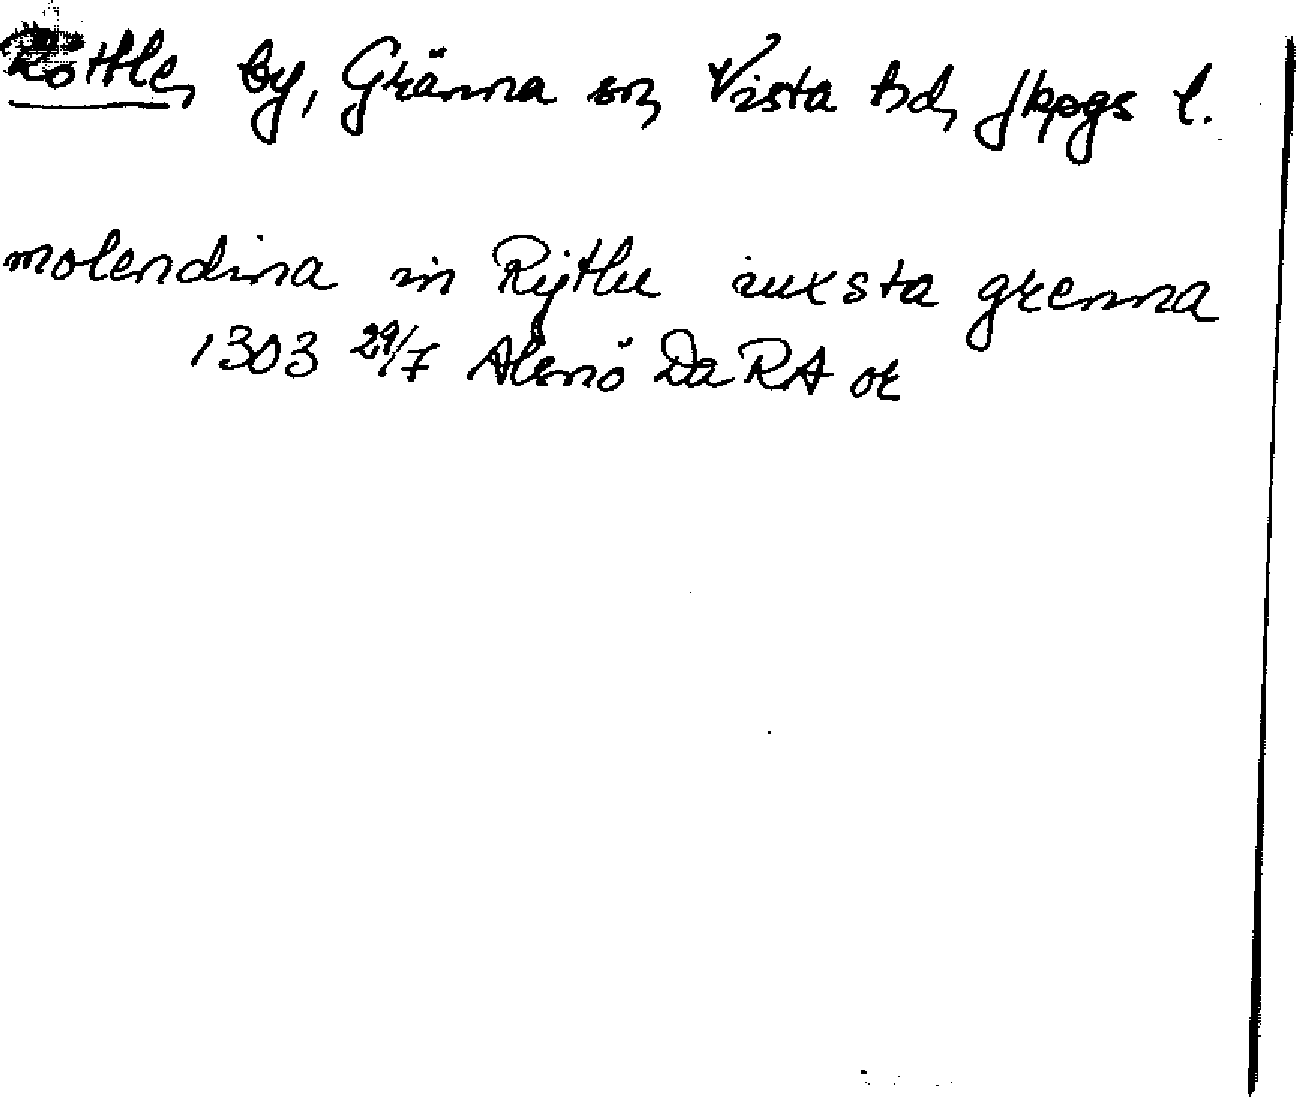 Röttle, by, Gränna sn, Vista hd, Jkpgs l.
molendina in Rijtlu iuxsta grenna
1303 29/7 Alsnö Da RA or